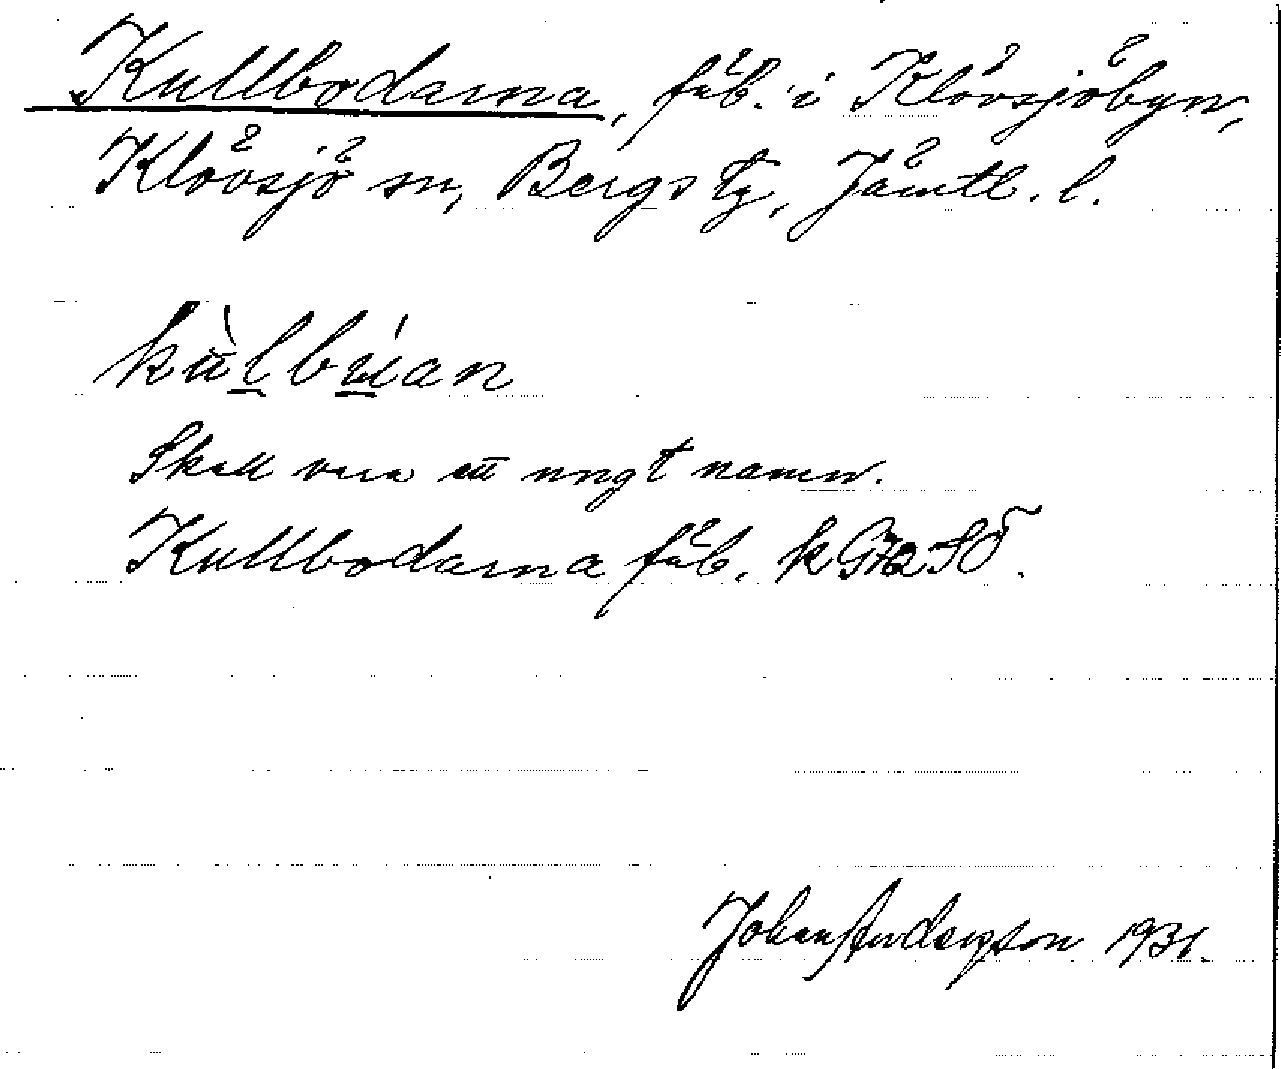 Kullbodarna, fäb. i Klövsjöbyn,
Klövsjö sn, Bergs tg, Jämtl. l.
kùlbúan
Skall vara ett ungt namn.
Kullbodarna fäb. k G72SÖ.
Johan Andersson 1931.